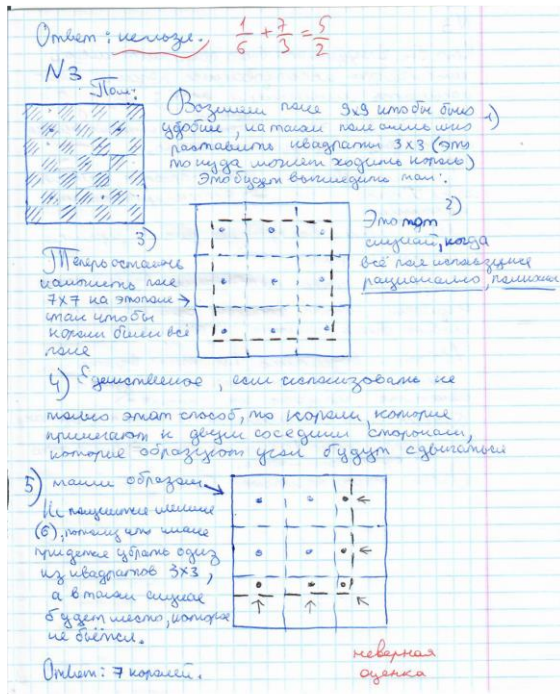 Ответ: нельзя. 1/6 + 7/3 = 5/2
N3
Поле:
Возьмём поле 9x9 чтобы было 1)
удобнее, на таком поле можно
расставить квадратики 3x3 (это
то куда может ходить король)
Это будет выглядеть так:
2)
Это тот
случай, когда
всё поле используется
рационально, полностью
3)
Теперь осталось
наложить поле
7x7 на это поле →
так чтобы
короли били всё
поле
4) Единственное, если использовать не
только этот способ, то короли, которые
прилегают к двум соседним сторонам,
которые образуют угол будут сдвигаться
5) таким образом
меньше
(6), потому что иначе
придётся убрать один
из квадратов 3x3,
а в таком случае
будет место, которое
не бьётся.
Ответ: 7 королей.
неверная
оценка